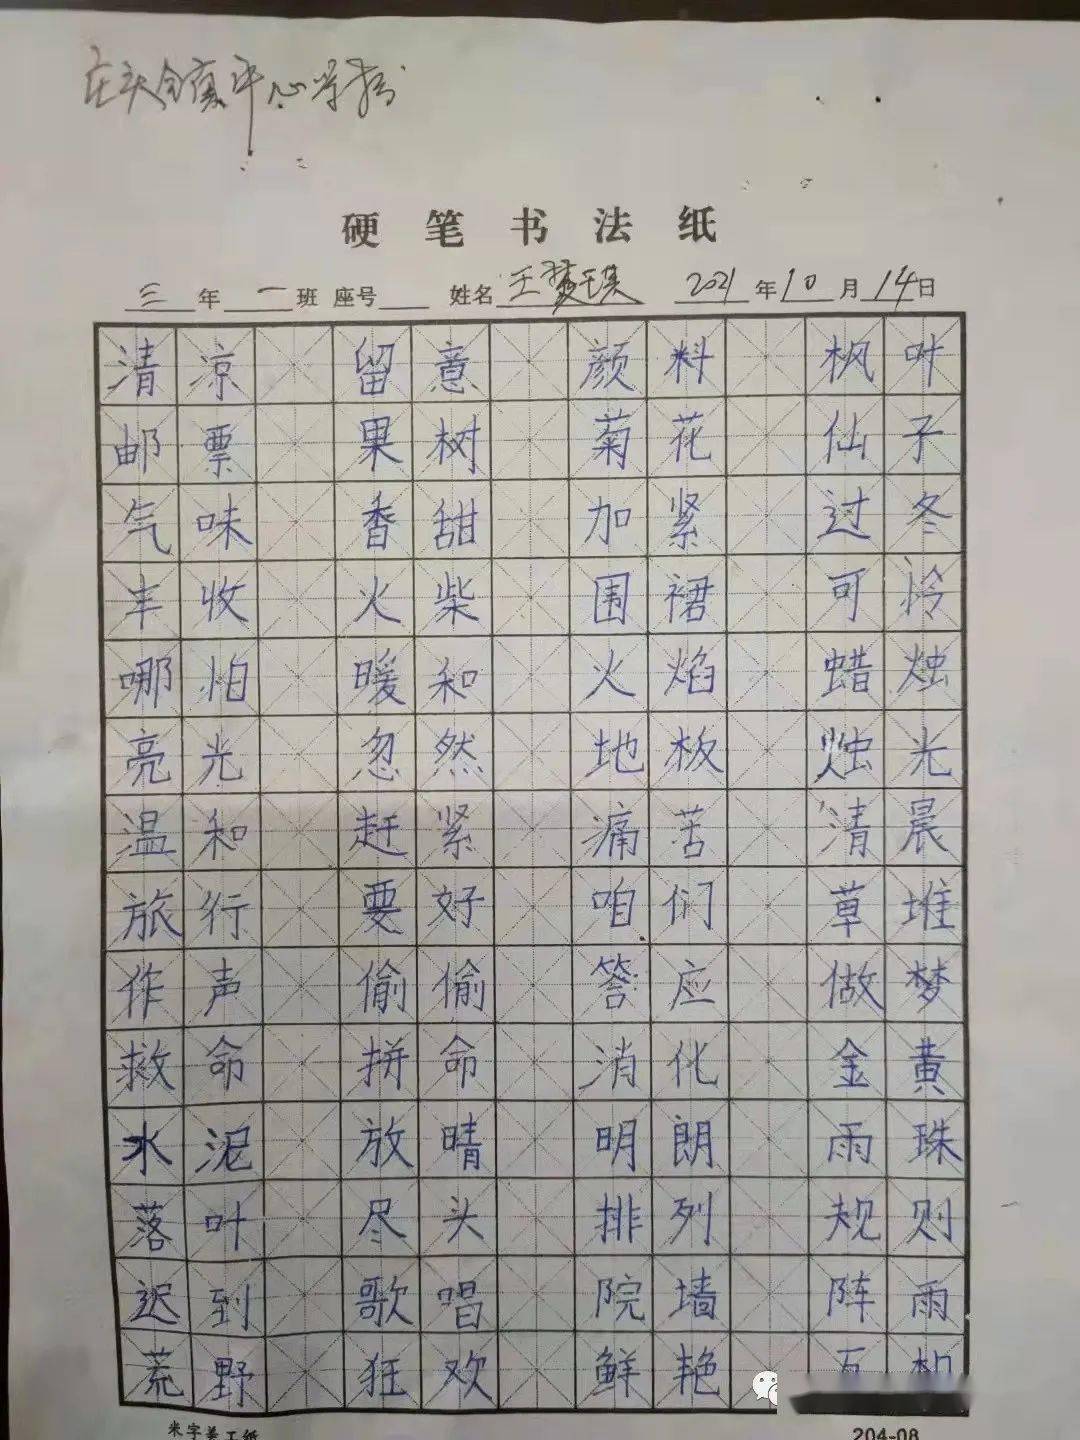 庄头金寨中心学校
硬笔书法纸
三年一班 座号 姓名 王梦琪 2021年10月14日
清凉 留意 颜料 枫叶
邮票 果树 菊花 仙子
气味 香甜 加紧 过冬
丰收 火柴 围裙 可怜
哪怕 暖和 火焰 蜡烛
亮光 忽然 地板 烛光
温和 赶紧 痛苦 清晨
旅行 要好 咱们 草堆
作声 偷偷 答应 做梦
救命 拼命 消化 金黄
水泥 放晴 明朗 雨珠
落叶 尽头 排列 规则
迟到 歌唱 院墙 阵雨
荒野 狂欢 鲜艳 互相
米字美工纸 204-08